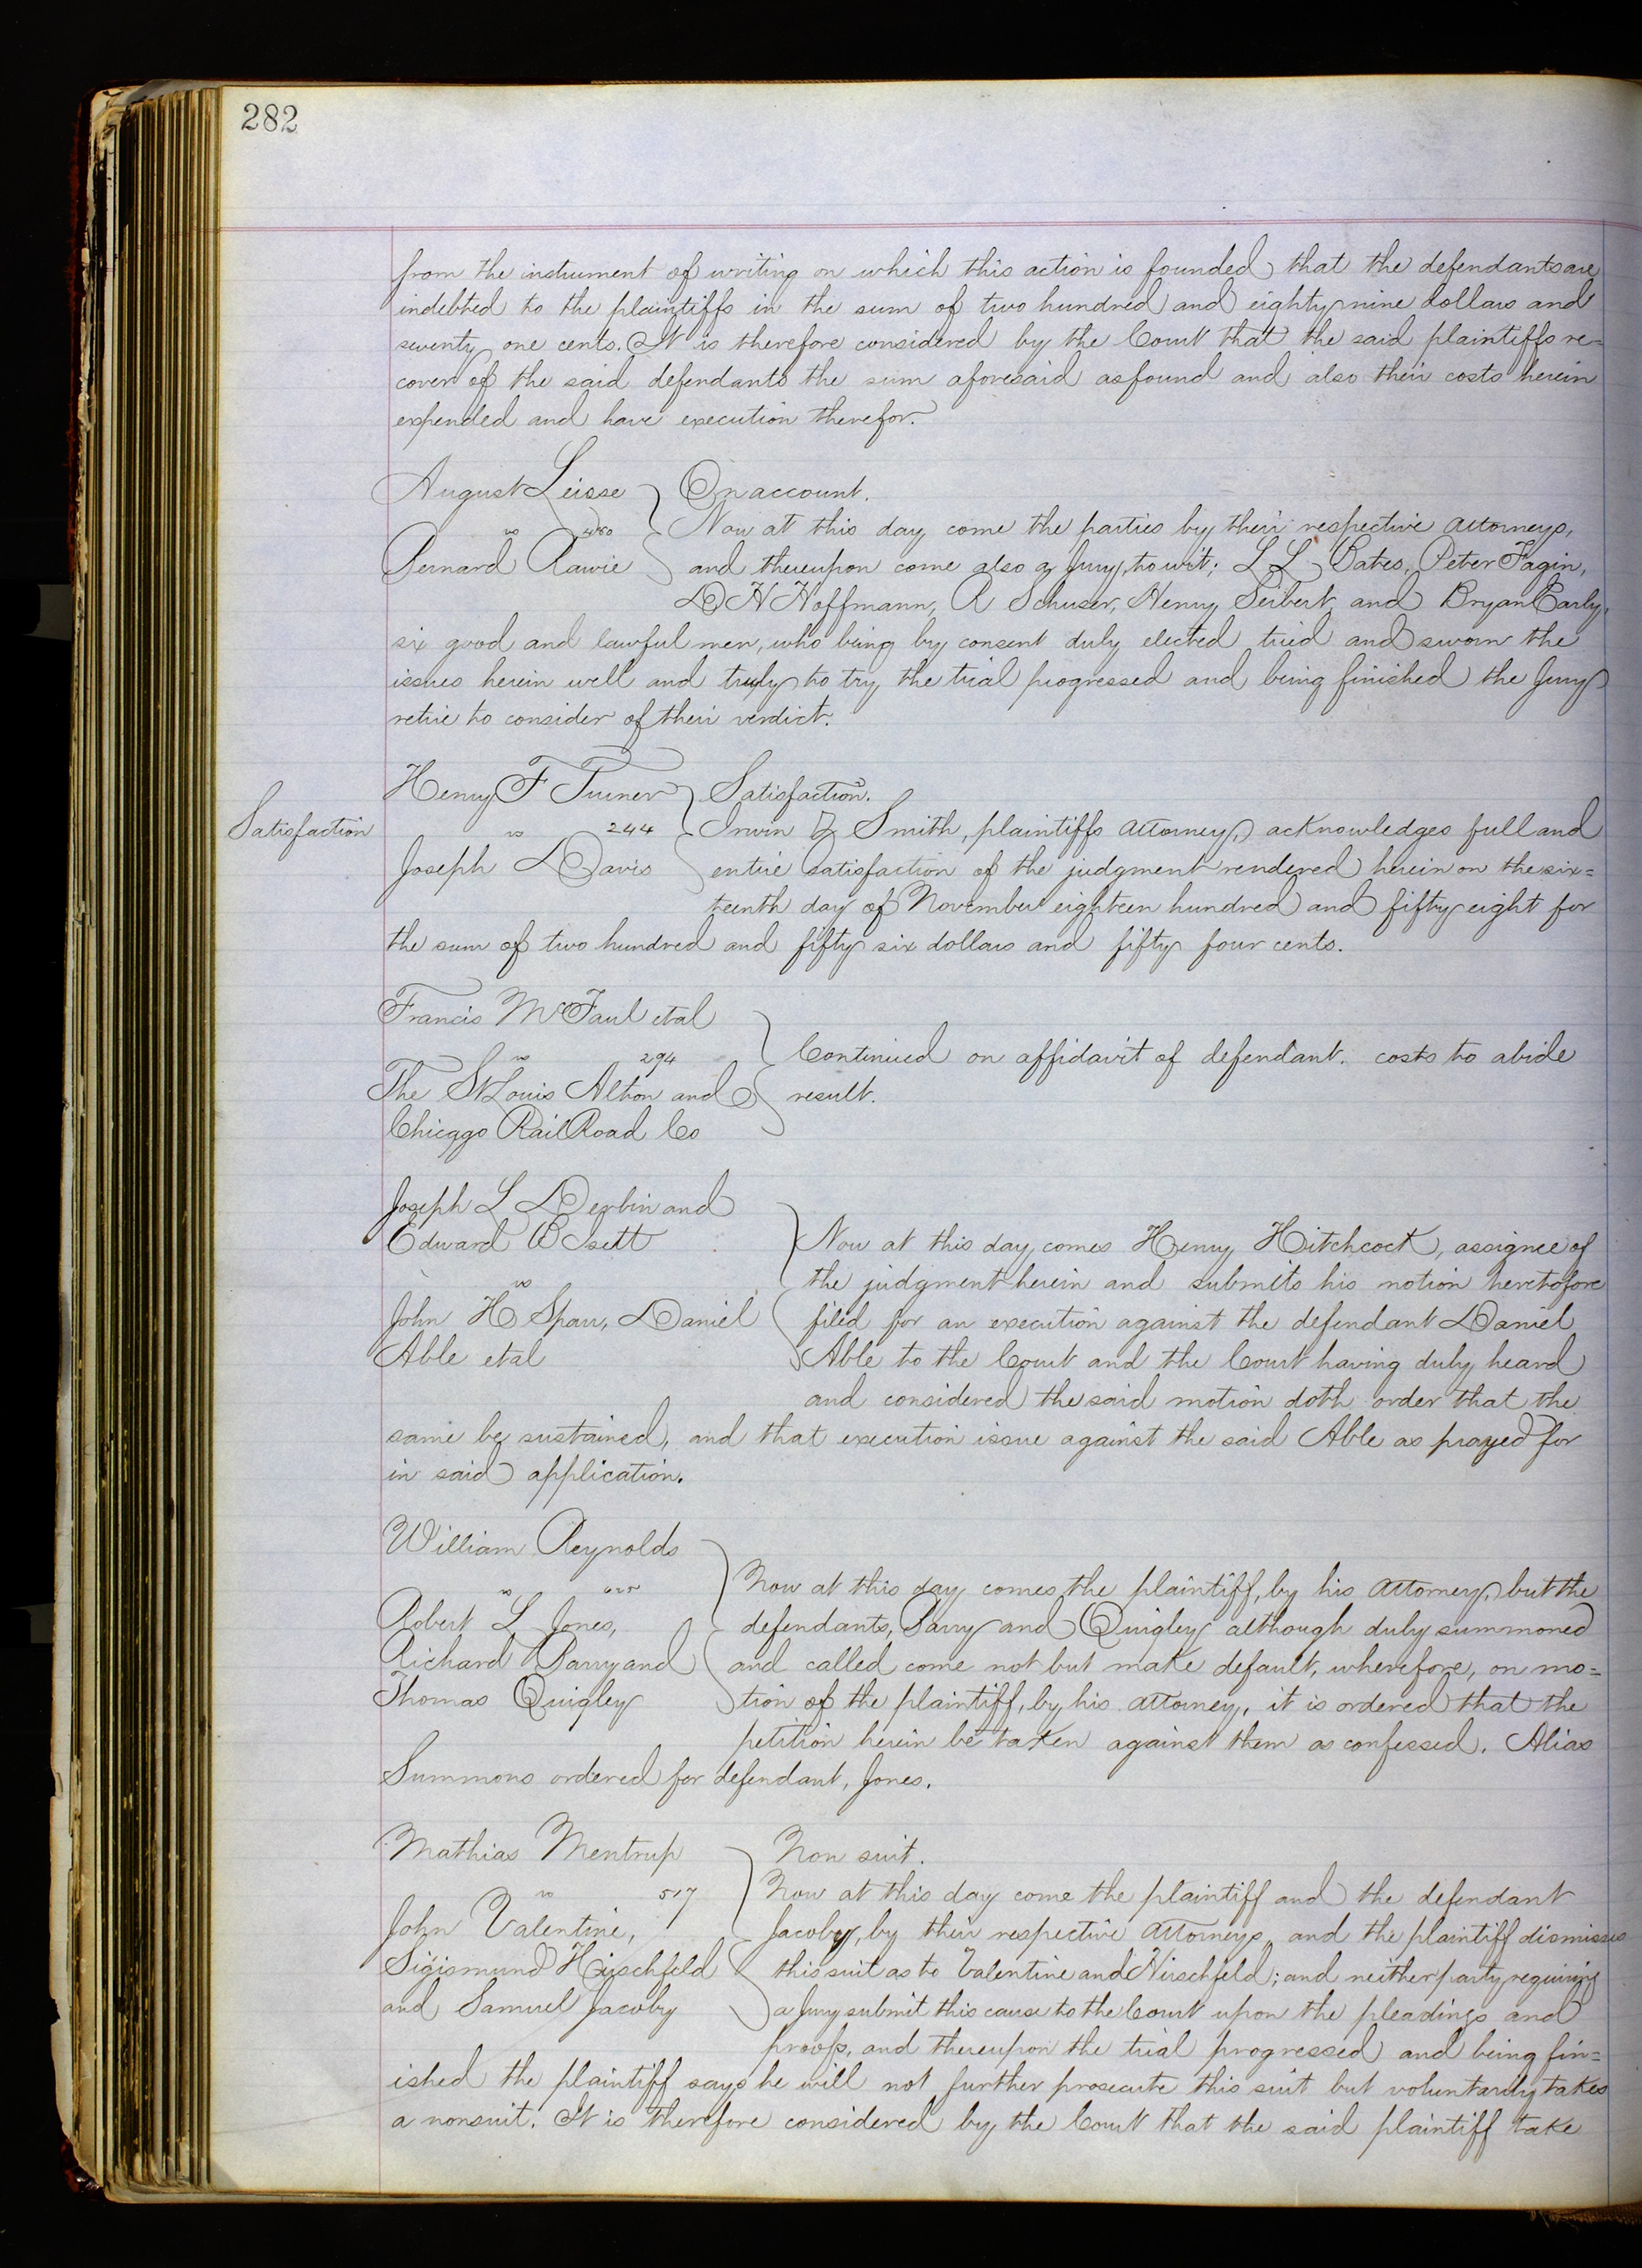 282
from the instrument of writing on which this action is founded, that the defendants are
indebted to the plaintiffs in the sum of two hundred and eighty nine dollars and
seventy one cents. It is therefore considered by the Court that the said plaintiffs re=
cover of the said defendants the sum aforesaid as found and also their costs herein
expended and have execution therefor.
August Leisse
vs
Bernard Rawie
On account.
Now at this day come the parties by their respective attorneys,
and thereupon come also a Jury, to wit; L L Bates, Peter Fagin,
D H Hoffmann, A Schuser, Henry Seibert and Bryan Early,
six good and lawful men, who being by consent duly elected tried and sworn the
issues herein well and truly to try the trial progressed and being finished the Jury
retire to consider of their verdict.
Satisfaction
Henry F Turner
vs 244
Joseph Davis
Satisfaction.
Irwin Z Smith, plaintiffs attorney, acknowledges full and
entire satisfaction of the judgment rendered herein on the six=
teenth day of November eighteen hundred and fifty eight for
the sum of two hundred and fifty six dollars and fifty four cents.
Francis McFaul et al
vs 294
The St Louis Alton and
Chicago Rail Road Co
Continued on affidavit of defendant. costs to abide
result.
Joseph L and
Edward
vs
John H Sparr, Daniel
Able et al
Now at this day comes Henry Hitchcock, assignee of
the judgment herein and submits his motion heretofore
filed for an execution against the defendant Daniel
Able to the Court and the Court having duly heard
and considered the said motion doth order that the
same be sustained, and that execution issue against the said Able as prayed for
in said application.
William Reynolds
vs
Robert L Jones,
Richard Barry and
Thomas Quigley
Now at this day comes the plaintiff, by his attorney, but the
defendants, Barry and Quigley although duly summoned
and called come not but make default, wherefore, on mo=
tion of the plaintiff, by his attorney, it is ordered that the
petition herein be taken against them as confessed. Alias
Summons ordered for defendant, Jones.
Mathias Mentrup
vs 517
John Valentine,
Sigismund Hirschfeld
and Samuel Jacoby
Non suit.
Now at this day come the plaintiff and the defendant
Jacoby, by their respective attorneys, and the plaintiff dismisses
this suit as to Valentine and Hirschfeld; and neither party requiring
a Jury submit this cause to the Court upon the pleadings and
proofs, and thereupon the trial progressed and being fin=
ished the plaintiff says he will not further prosecute this suit but voluntarily takes
a nonsuit. It is therefore considered by the Court that the said plaintiff take